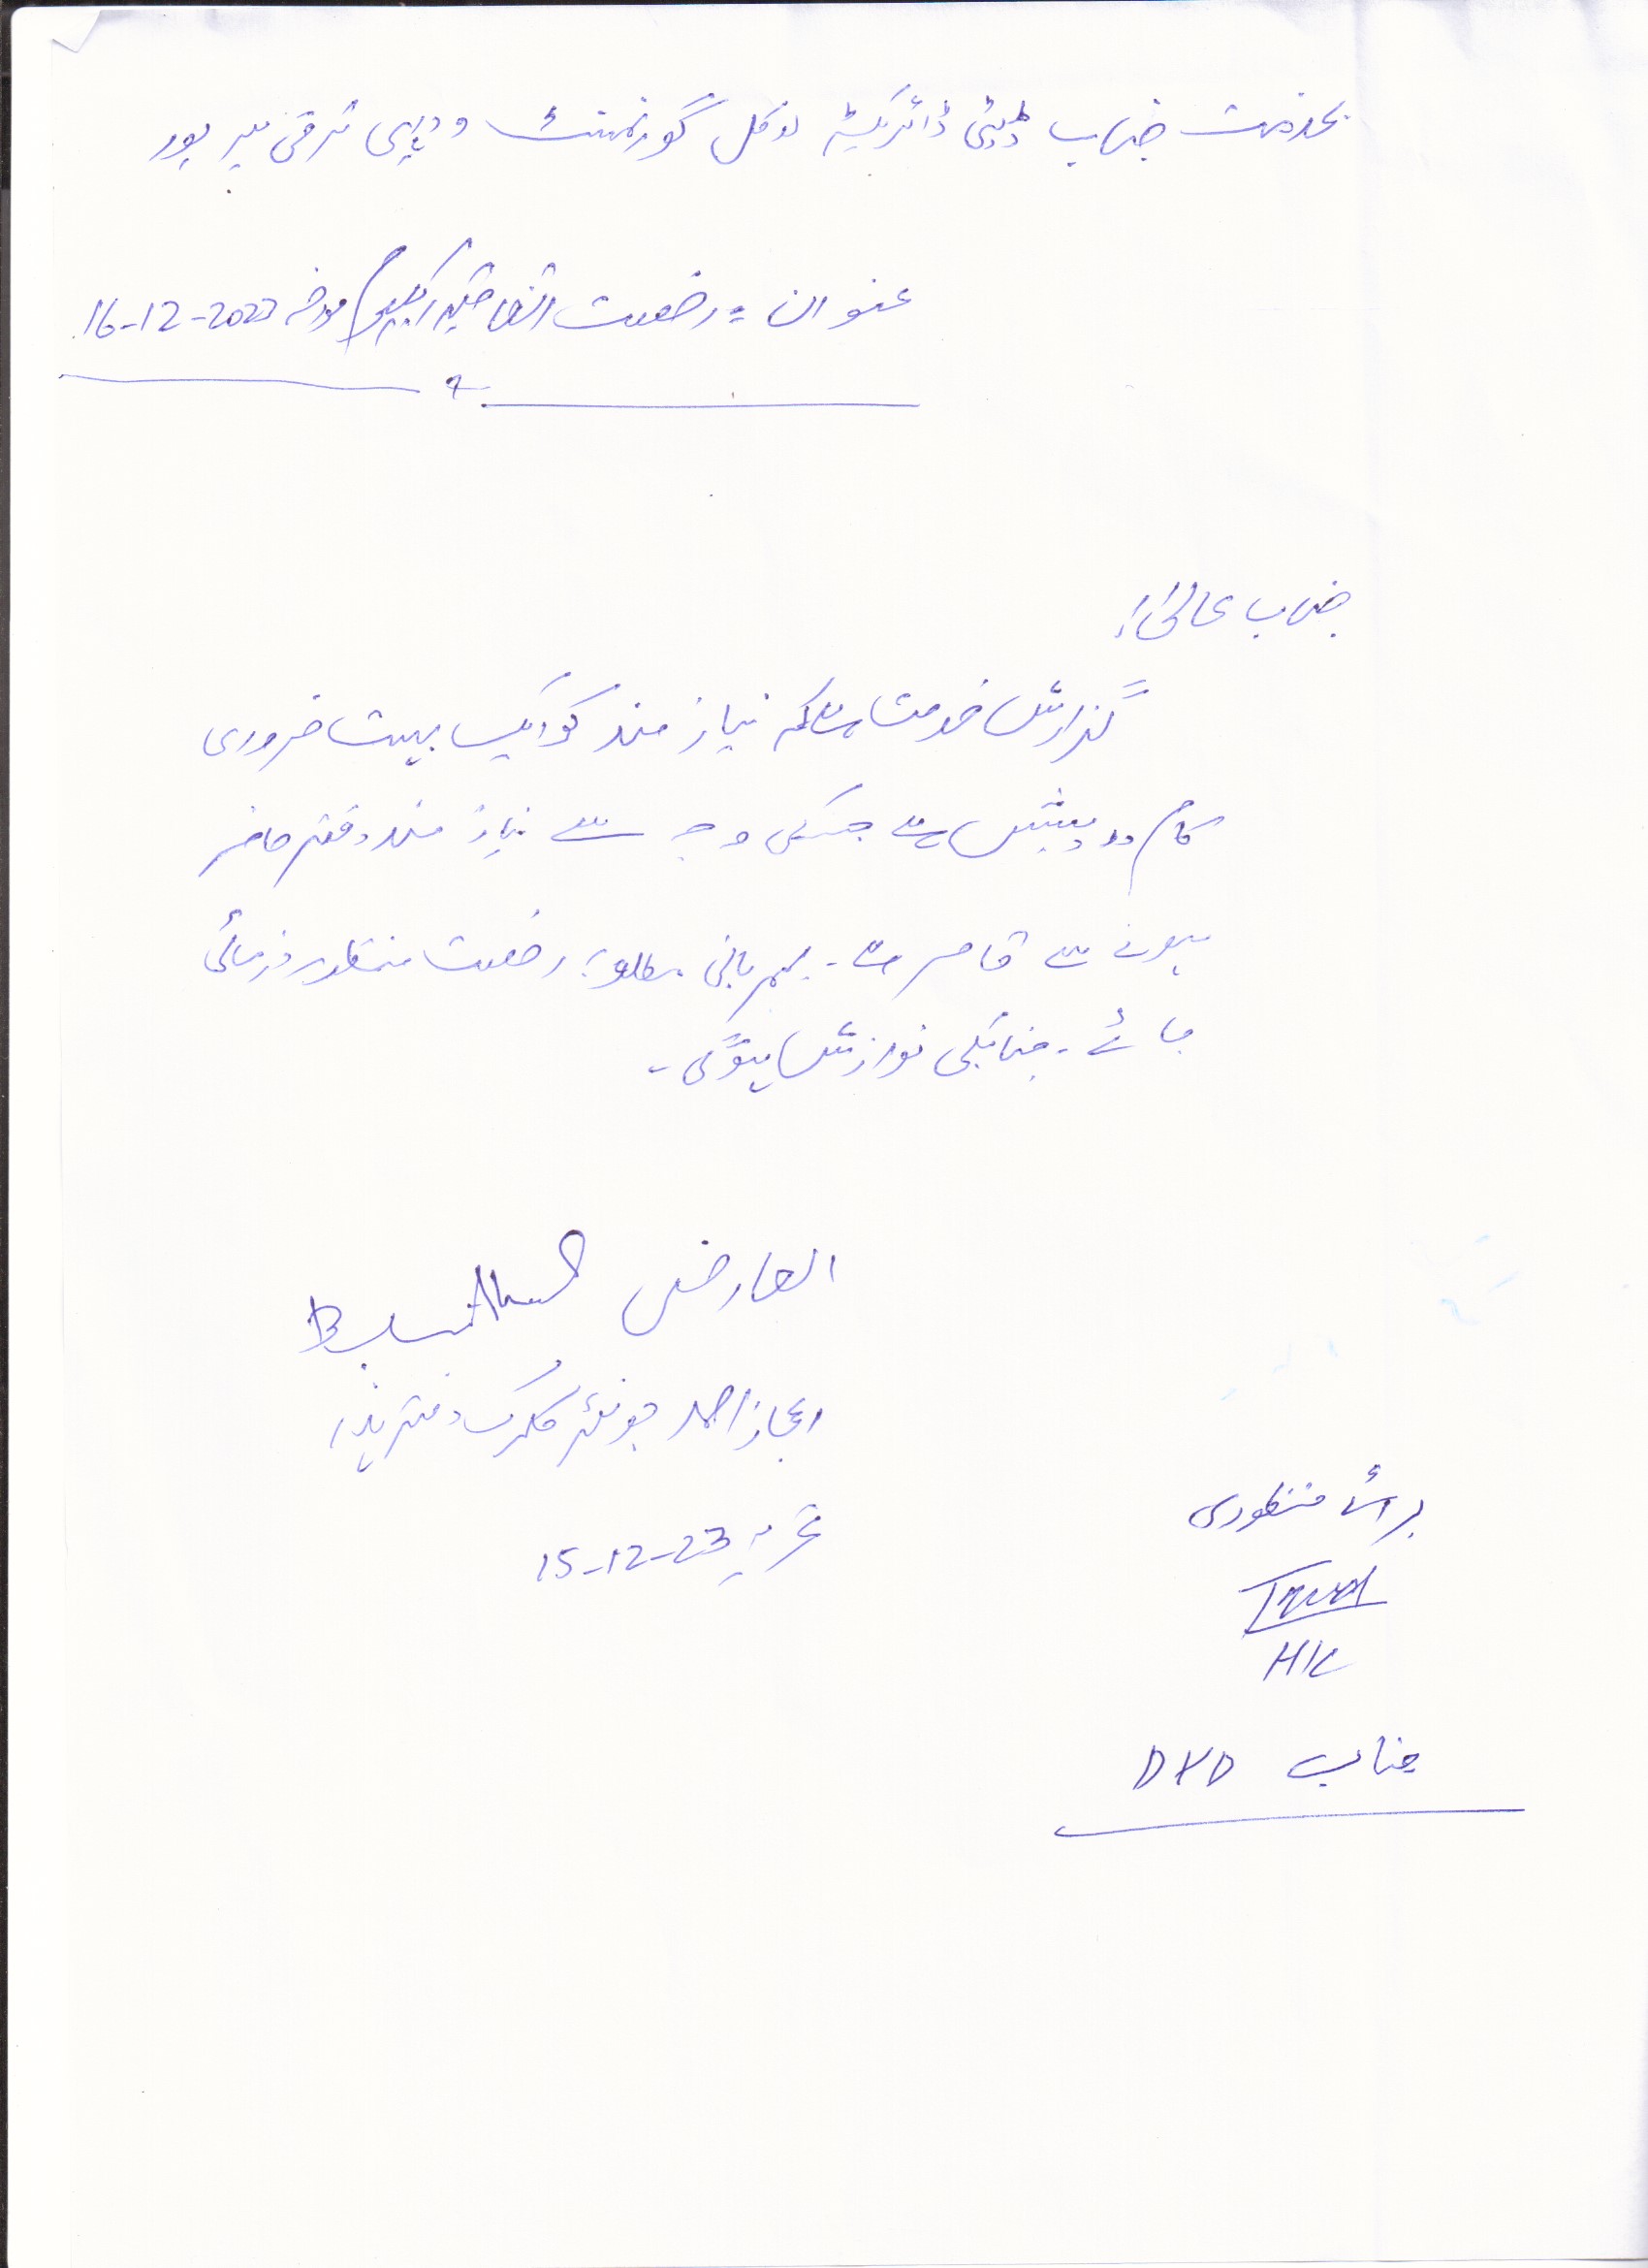 بخدمت جناب ڈپٹی ڈائریکٹر لوکل گورنمنٹ و دیہی ترقی میرپور
عنوان = رخصت اتفاقیہ یکیوم مورخہ 2023-12-16
جناب عالی!
گذارش خدمت ہے کہ نیاز مند کو ایک بہت ضروری
کام درپیش ہے جسکی وجہ سے نیاز مند دفتر حاضر
ہونے سے قاصر ہے۔ بمہربانی مطلوبہ رخصت منظور فرمائی
جائے۔ جنابکی نوازش ہوگی۔
العارض
اعجاز احمد جونیئر کلرک دفتر ہذا
تحریر 23-12-15
برائے منظوری
H/C
جناب DXD